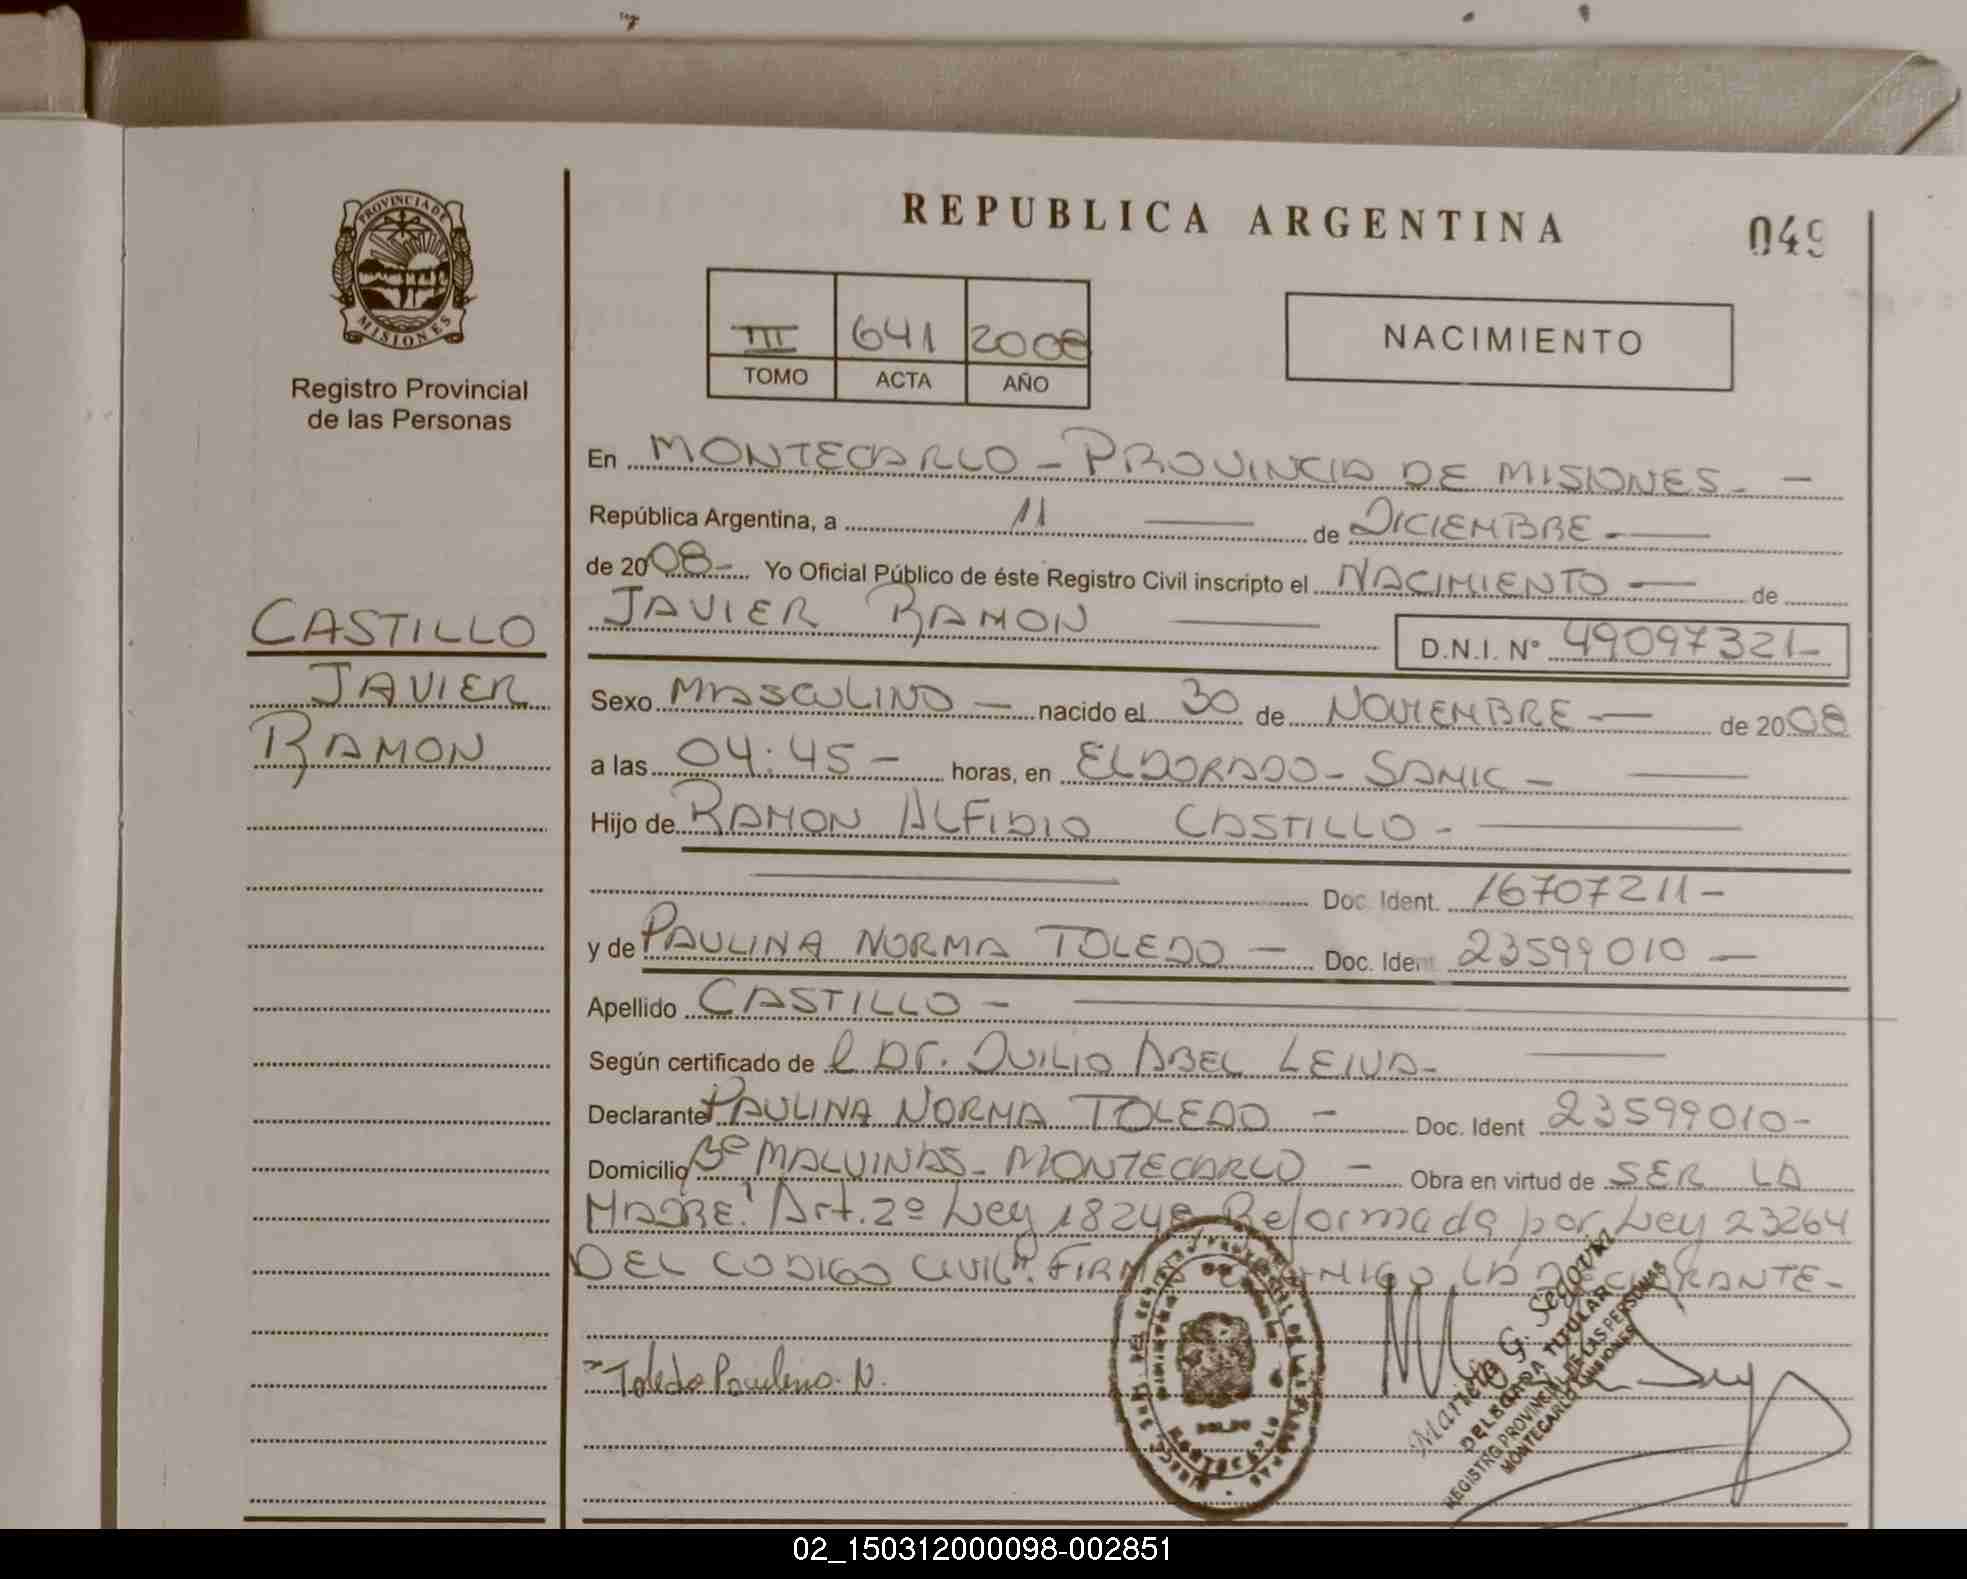 PROVINCIA DE
MISIONES
Registro Provincial
de las Personas
REPUBLICA ARGENTINA
049
III 641 2008
TOMO ACTA AÑO
NACIMIENTO
En MONTECARLO - PROVINCIA DE MISIONES. -
República Argentina, a 11 de DICIEMBRE -
de 2008 - Yo Oficial Público de éste Registro Civil inscripto el NACIMIENTO - de
JAVIER RAMON
D.N.I. N° 49097321-
CASTILLO
JAVIER
RAMON
Sexo MASCULINO - nacido el 30 de NOVIEMBRE - de 2008
a las 04:45 - horas, en ELDORADO - SAMIC -
Hijo de RAMON ALFIDIO CASTILLO -
Doc. Ident. 16707211 -
y de PAULINA NORMA TOLEDO - Doc. Ident 23599010 -
Apellido CASTILLO -
Según certificado de l Dr. DUILIO ABEL LEIVA -
Declarante PAULINA NORMA TOLEDO - Doc. Ident 23599010 -
Domicilio Bº MALVINAS - MONTECARLO - Obra en virtud de SER LA
MADRE. "Art. 2º Ley 18248, Reformada por Ley 23264
DEL CODIGO CIVIL". FIRMA CONMIGO LA DECLARANTE -
Toledo Paulina. N.
MONTECARLO
Marta G. Segovia
DELEGADA TITULAR
REGISTRO PROVINCIAL DE LAS PERSONAS
MONTECARLO MISIONES
02_150312000098-002851